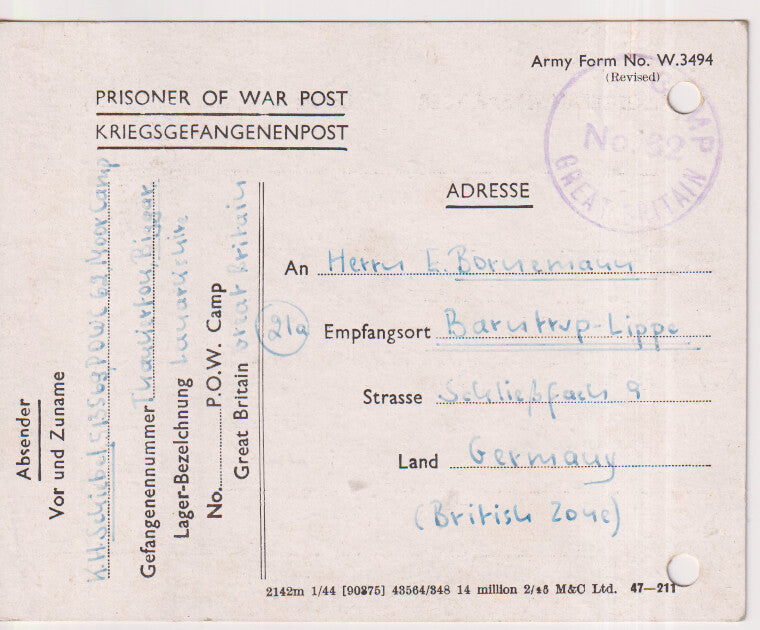 Army Form No. W.3494
(Revised)
PRISONER OF WAR POST
KRIEGSGEFANGENENPOST
CAMP
No. 62
GREAT BRITAIN
ADRESSE
An Herrn E. Bornemann
21a
Empfangsort Barntrup-Lippe
Strasse Schließfach 9
Land Germany
(British Zone)
Absender
Vor und Zuname
K.H. Schiebel POWC 62, Moor Camp
Gefangenennummer Thankerton, Biggar
Lager-Bezeichnung Lanarkshire
No. P.O.W. Camp
Great Britain Great Britain
2142m 1/44 [90375] 43564/348 14 million 2/45 M&C Ltd. 47—211